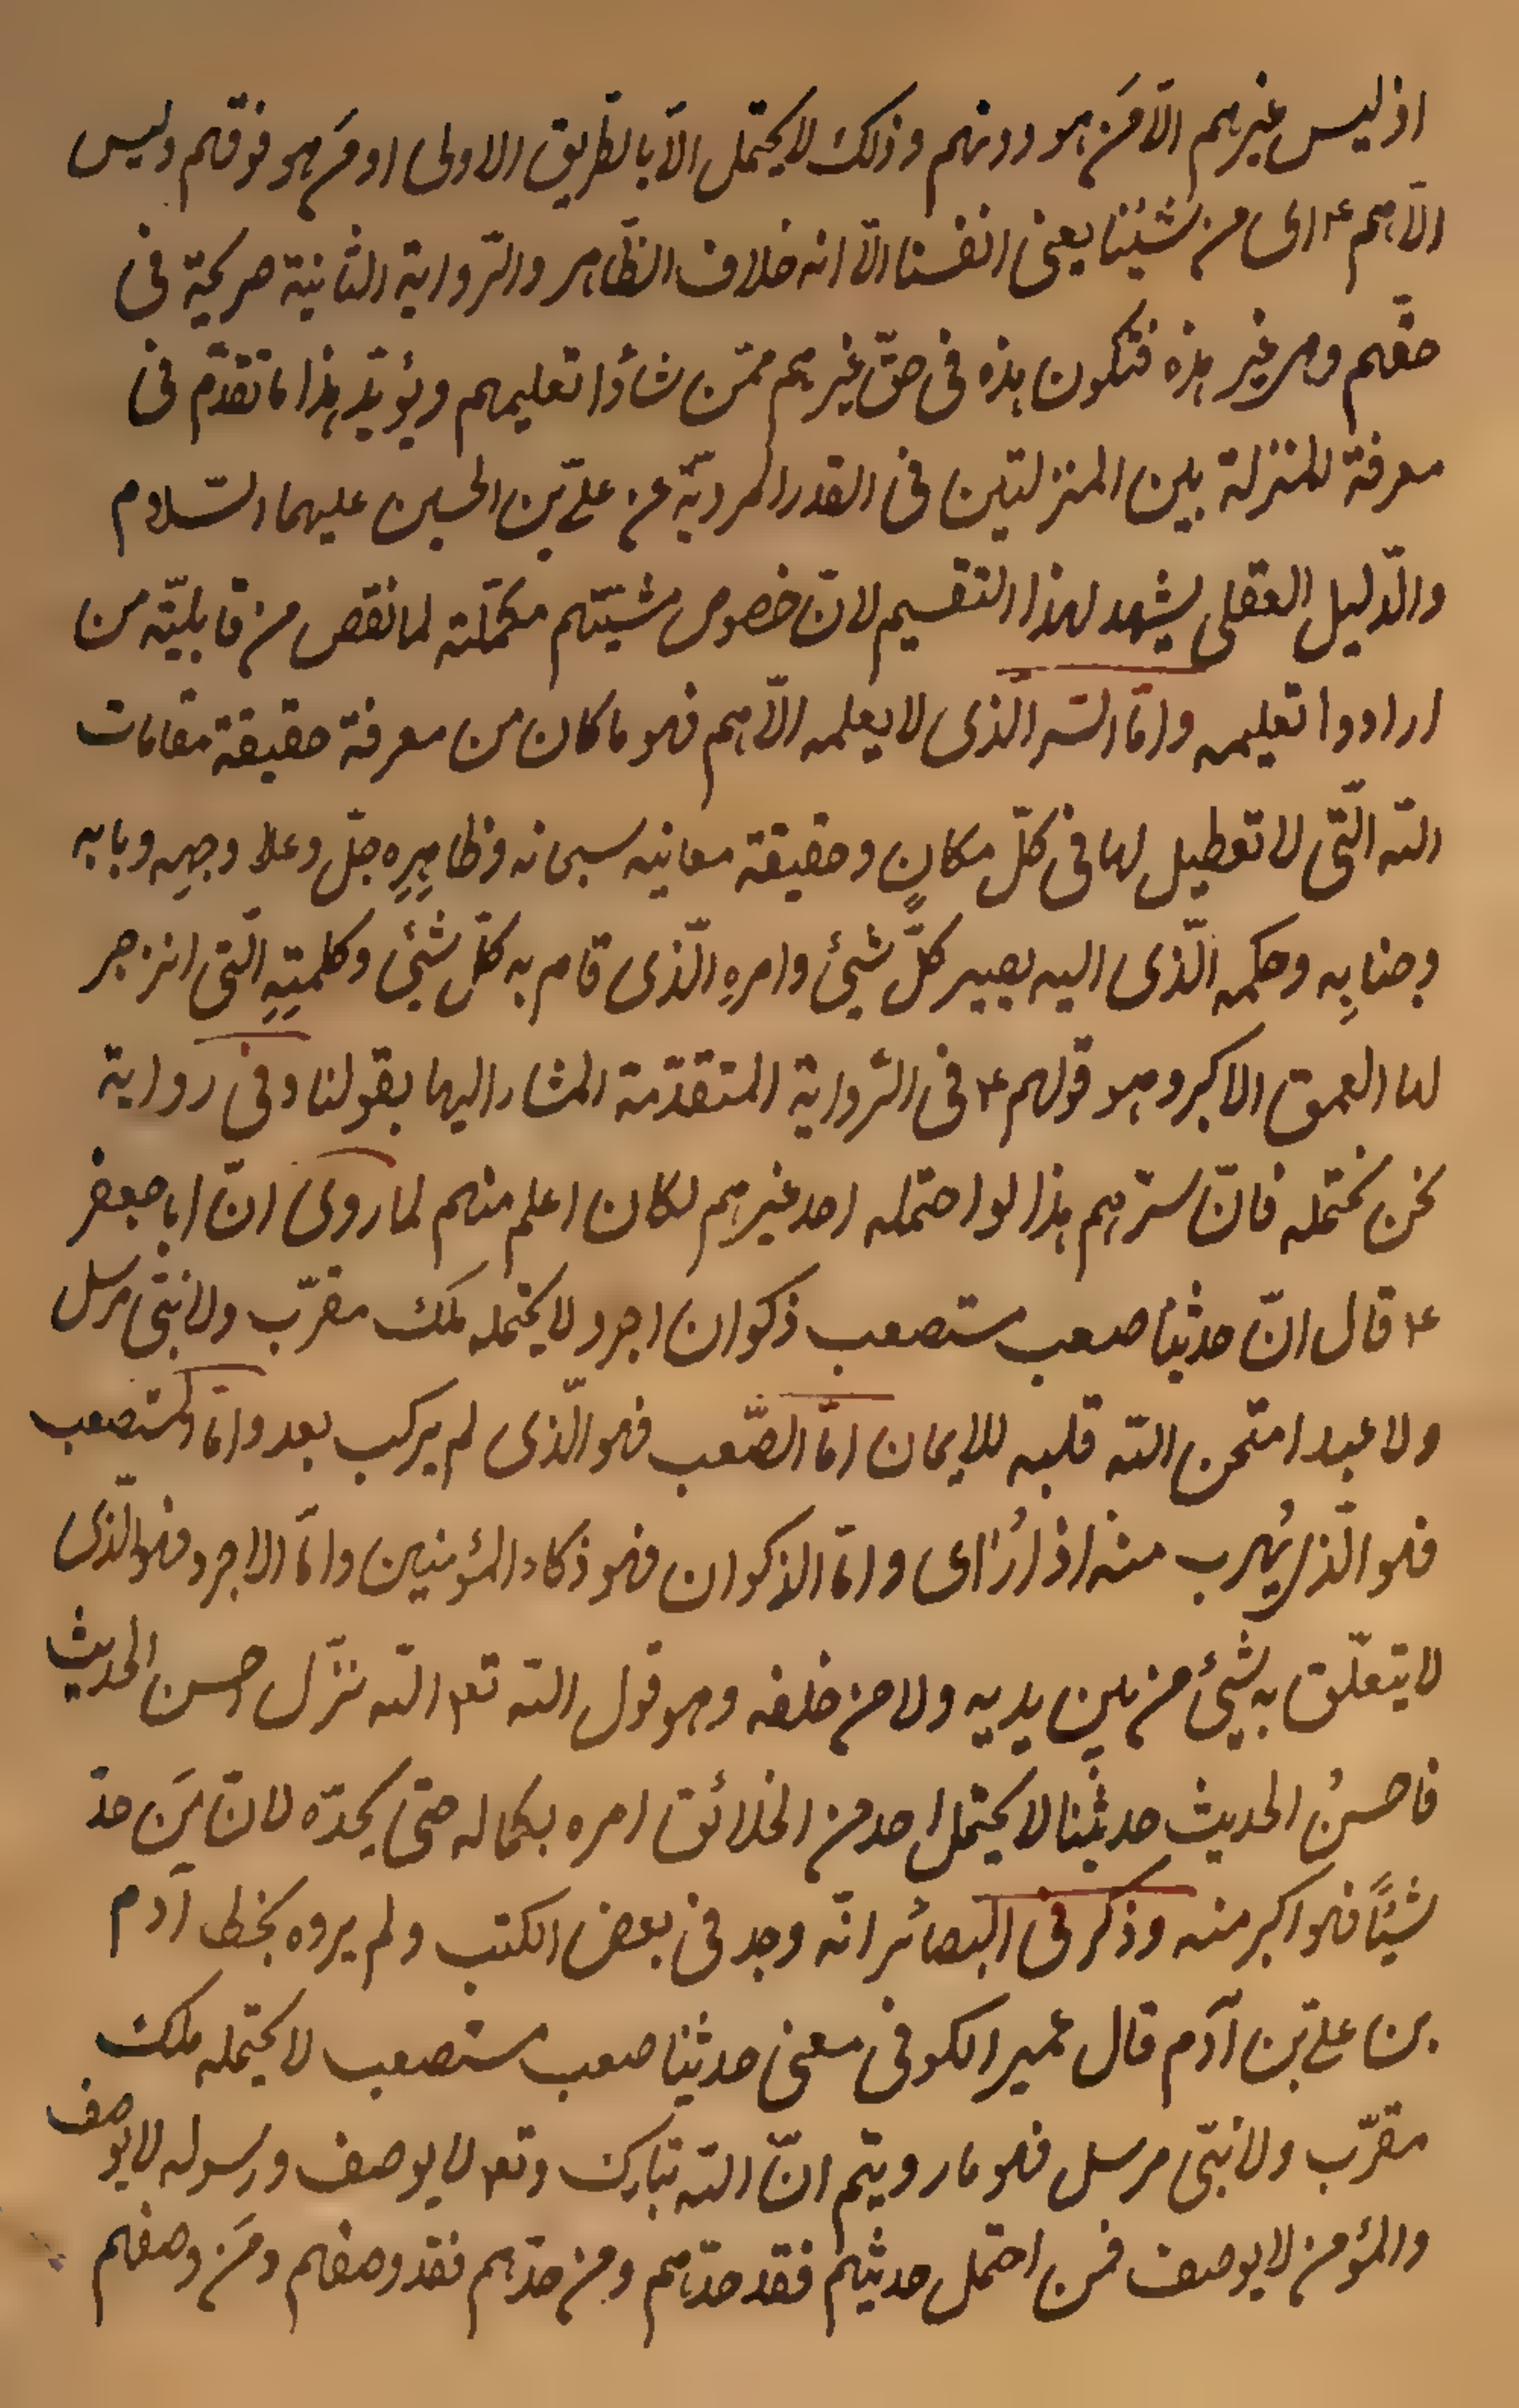 اذ ليس غيرهم الّا مَن هو دونهم وذلك لا يحتمل الّا بالطّريق الاولى او مَن هو فوقهم وليس
الّا هم ع اى من شئنا يعنى انفسنا الّا انه خلاف الظّاهر والرّواية الثانية صريحة فى
حقّهم وهى غير هذه فتكون هذه فى حقّ غيرهم ممّن شاؤا تعليمهم ويؤيّد هذا ما تقدّم فى
معرفة المنزلة بين المنزلتين فى القدر المرويّة عن علىّ بن الحسين عليهما السّلام
والدّليل العقلى يشهد لهذا التقسيم لانّ خصوص مشيّتهم مكمّلة لما نقص من قابليّة من
ارادوا تعليمه وامّا السّر الّذى لا يعلمه الّا هم فهو ما كان من معرفة حقيقة مقامات
الله الّتى لا تعطيل لها فى كلّ مكانٍ وحقيقة معانيه سبحانه وظاهِرِه جلّ وعلا وجهِه وبابه
وجنابِه وحكمه الّذى اليه يصير كلّ شيئ وامرِه الّذى قام به كلّ شيئ وكلمتِهِ الّتى انزجر
لها العمق الاكبر وهو قولهم ع فى الرّواية المتقدّمة المشار اليها بقولنا وفى رواية
نحن نحتمله فانّ سرّهم هذا لو احتمله احد غيرهم لكان اعلم منهم لما روى انّ ابا جعفر
ع قال انّ حديثنا صعب مستصعب ذكوان اجرد لا يحتمله ملك مقرّب ولا نبىّ مرسل
ولا عبد امتحن الله قلبه للايمان امّا الصّعب فهو الّذى لم يركب بعد وامّا المستصعب
فهو الّذى يُهرب منه اذا رُاى وامّا الذكوان فهو ذكاء المؤمنين وامّا الاجرد فهو الّذى
لا يتعلّق به شيئ من بين يديه ولا من خلفه وهو قول الله تع الله نزّل احسن الحديث
فاحسنُ الحديث حديثنا لا يحتمل احد من الخلائق امره بكماله حتى يحدّه لانّ مَن حدّ
شيئًا فهو اكبر منه وذكر فى البصائر انّه وجد فى بعض الكتب ولم يروه بخط آدم
بن علىّ بن آدم قال عمير الكوفى معنى حديثنا صعب مستصعب لا يحتمله ملك
مقرّب ولا نبىّ مرسل فهو ما رويتم انّ الله تبارك وتع لا يوصف ورسوله لا يوصف
والمؤمن لا يوصف فمن احتمل حديثهم فقد حدّهم ومن حدّهم فقد وصفهم ومَن وصفهم